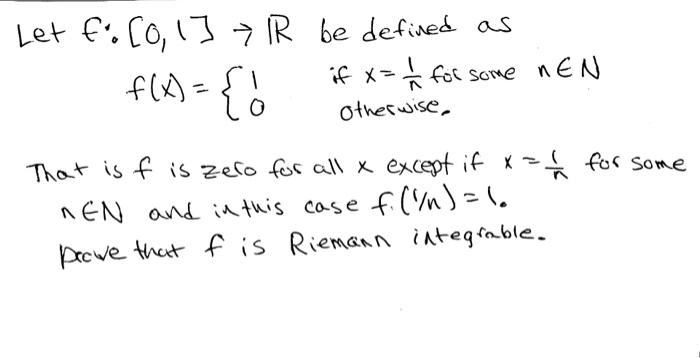 Let f: [0,1] → ℝ be defined as
f(x) = { 1 if x = 1/n for some n∈N
0 otherwise.
That is f is zero for all x except if x = 1/n for some
n∈N and in this case f(1/n) = 1.
prove that f is Riemann integrable.